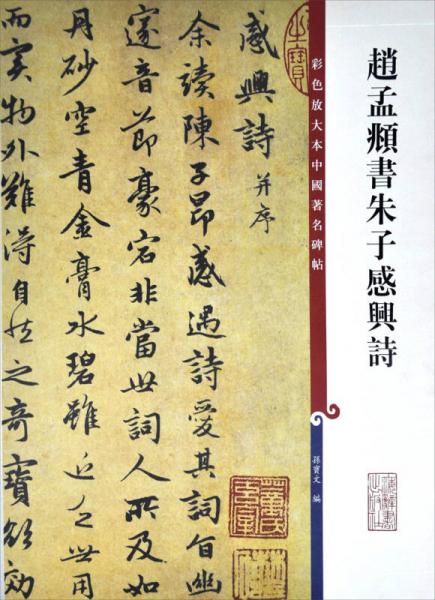 趙孟頫書朱子感興詩
彩色放大本中國著名碑帖
孫寶文 編
感興詩 并序
余讀陳子昂感遇詩愛其詞旨幽
邃音節豪宕非當世詞人所及如
丹砂空青金膏水碧雖近乏世用
而實物外難得自然之奇寶欲効